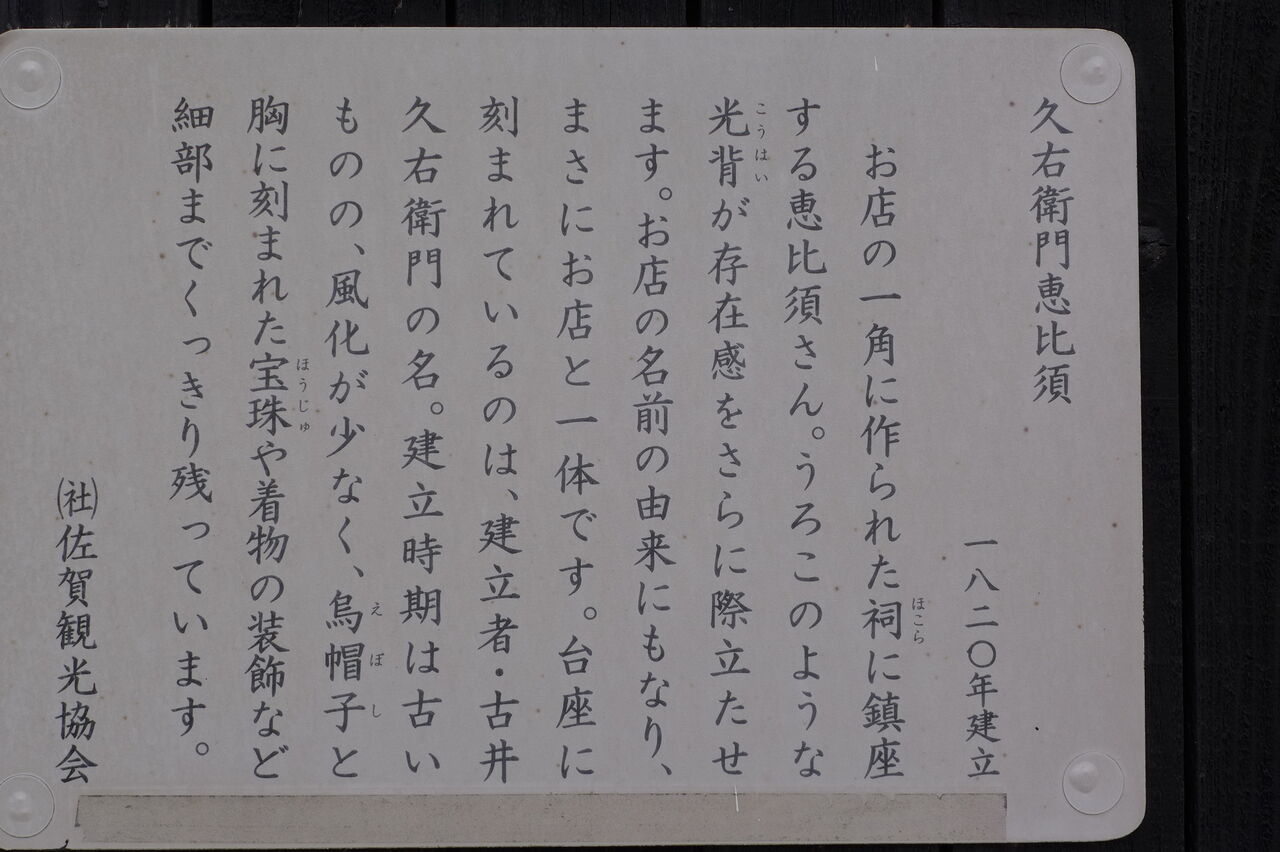 久右衛門恵比須
一八二〇年建立
お店の一角に作られた祠に鎮座
ほこら
する恵比須さん。うろこのような
光背が存在感をさらに際立たせ
こうはい
ます。お店の名前の由来にもなり、
まさにお店と一体です。台座に
刻まれているのは、建立者・古井
久右衛門の名。建立時期は古い
ものの、風化が少なく、烏帽子と
えぼし
胸に刻まれた宝珠や着物の装飾など
ほうじゅ
細部までくっきり残っています。
(社)佐賀観光協会